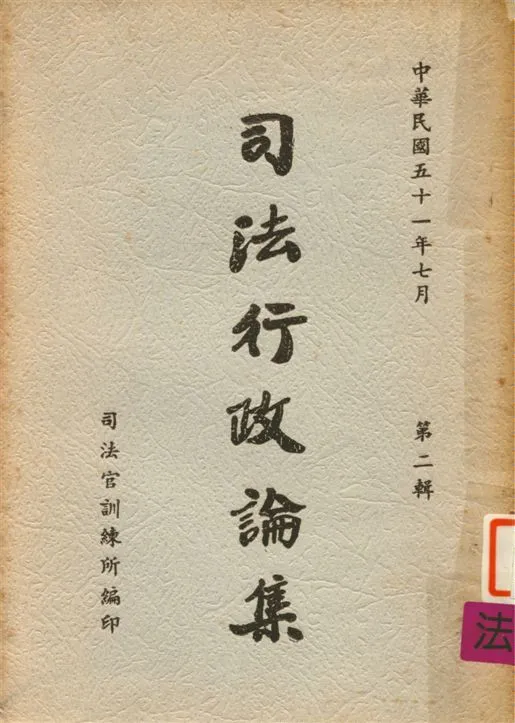 中華民國五十一年七月
第二輯
司法行政論集
司法官訓練所編印
法